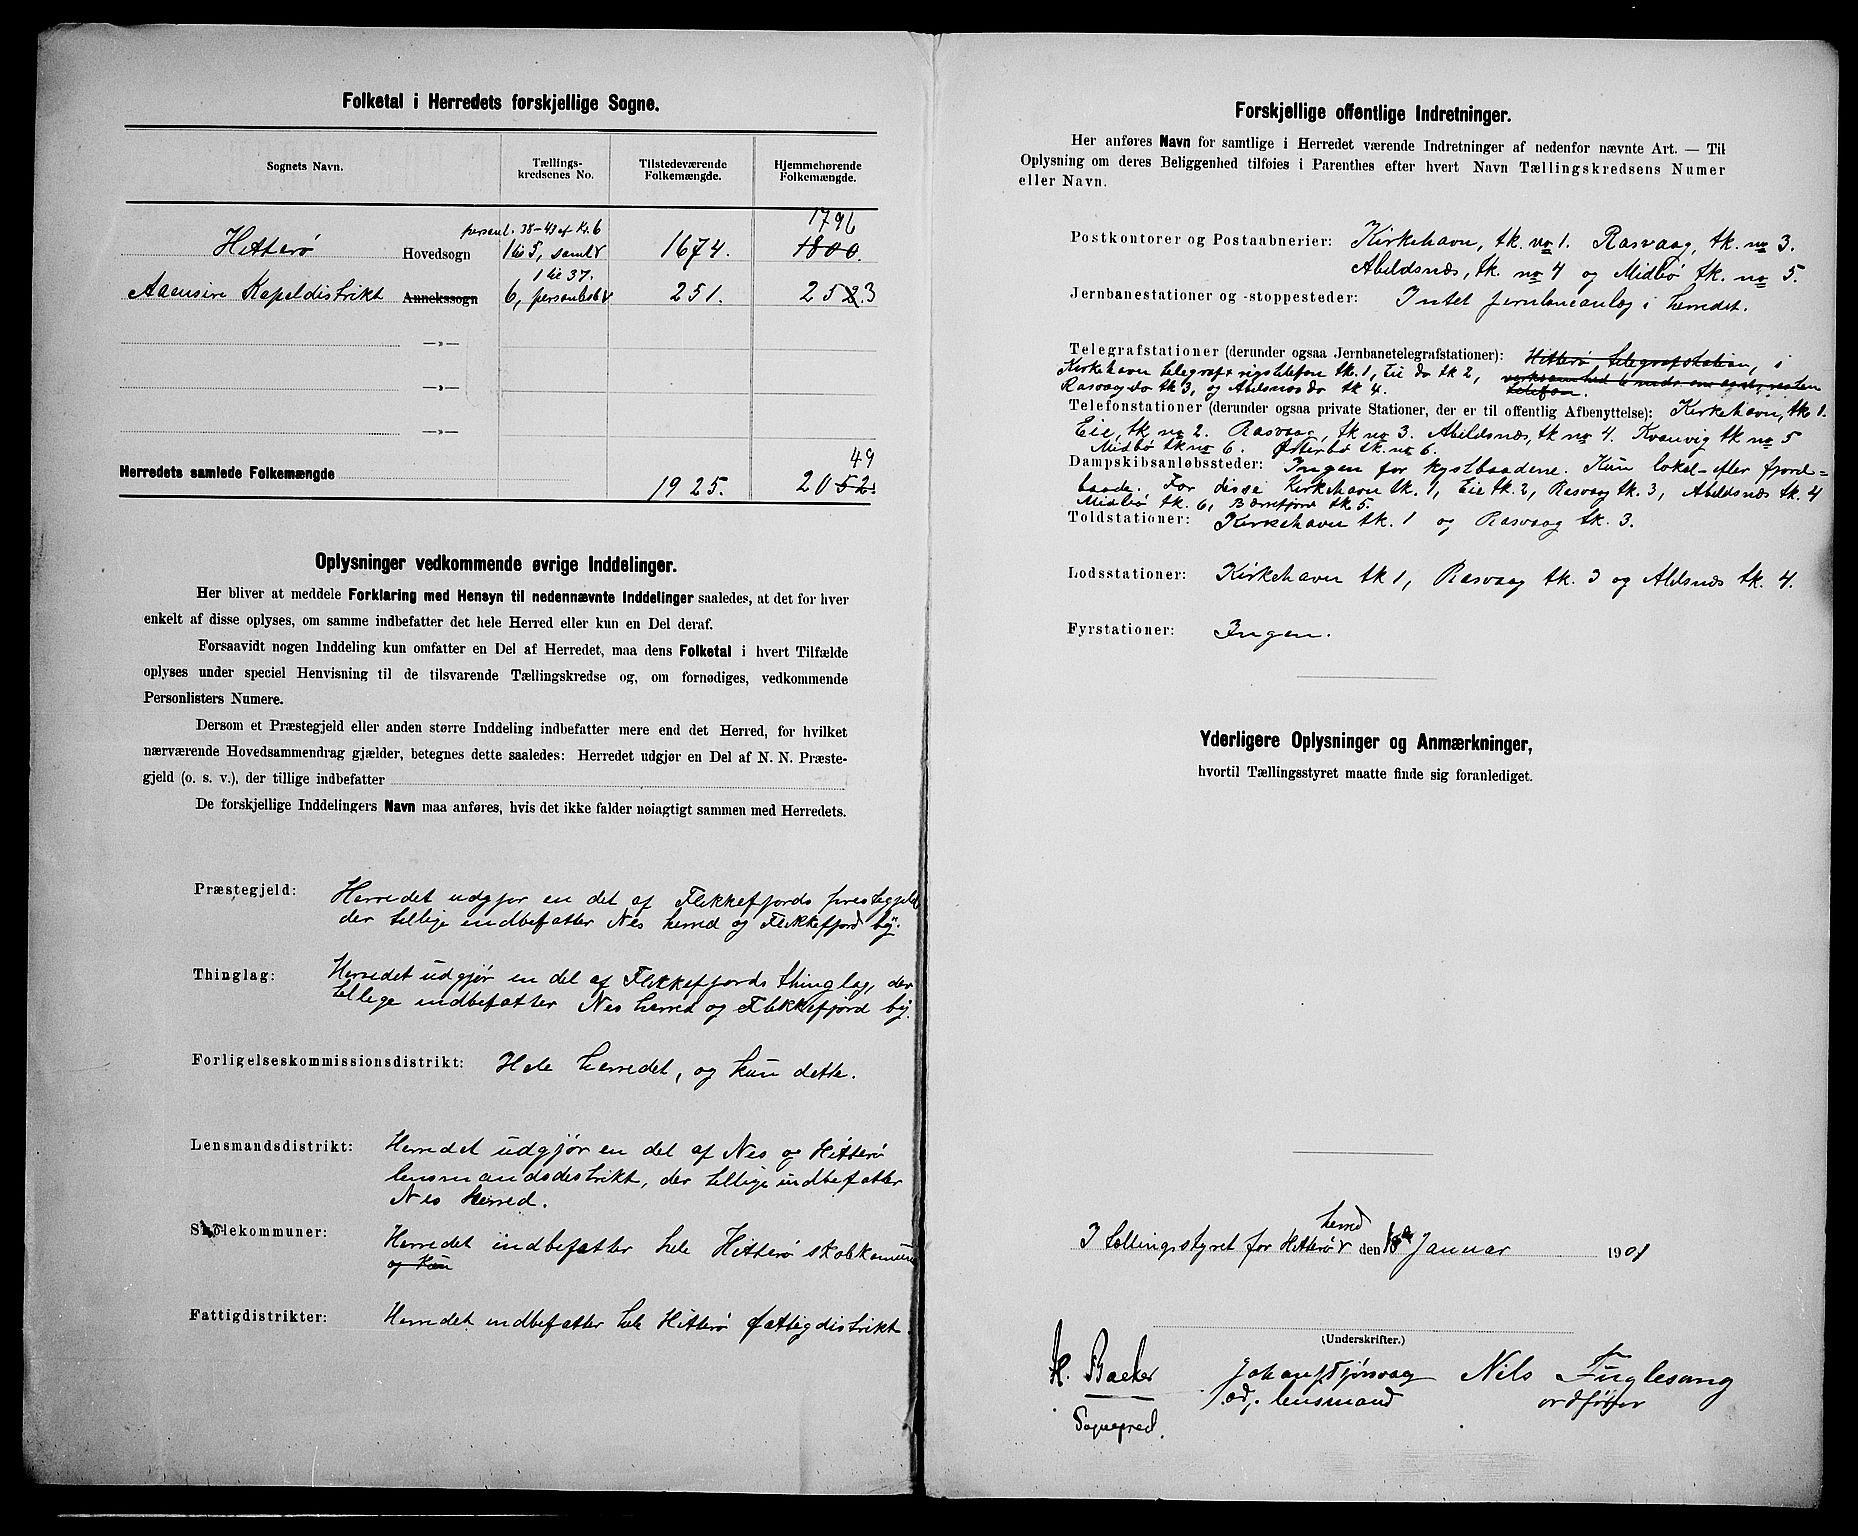 Folketal i Herredets forskjellige Sogne.
Sognets Navn. Tællings-kredsenes No. Tilstedeværende Folkemængde. Hjemmehørende Folkemængde.
personl. 38-43 af Kr. 6 1796
Hitterø Hovedsogn 1 til 5, samt 1674. 1800.
1 til 37.
Aaensire Kapeldistrikt Annekssogn 6, personlister 251. 2523
—»—
—»—
—»—
49
Herredets samlede Folkemængde 1925. 2052.
Oplysninger vedkommende øvrige Inddelinger.
Her bliver at meddele Forklaring med Hensyn til nedennævnte Inddelinger saaledes, at det for hver
enkelt af disse oplyses, om samme indbefatter det hele Herred eller kun en Del deraf.
Forsaavidt nogen Inddeling kun omfatter en Del af Herredet, maa dens Folketal i hvert Tilfælde
oplyses under speciel Henvisning til de tilsvarende Tællingskredse og, om fornødiges, vedkommende
Personlisters Numere.
Dersom et Præstegjeld eller anden større Inddeling indbefatter mere end det Herred, for hvilket
nærværende Hovedsammendrag gjælder, betegnes dette saaledes: Herredet udgjør en Del af N. N. Præste-
gjeld (o. s. v.), der tillige indbefatter
De forskjellige Inddelingers Navn maa anføres, hvis det ikke falder nøiagtigt sammen med Herredets.
Præstegjeld: Herredet udgjør en del af Flekkefjords prestegjeld
der tillige indbefatter Nes herred og Flekkefjord by.
Thinglag: Herredet udgjør en del af Flekkefjords thinglag, der
tillige indbefatter Nes herred og Flekkefjord by.
Forligelseskommissionsdistrikt: Hele herredet, og kun dette.
Lensmandsdistrikt: Herredet udgjør en del af Nes og Hitterø
lensmandsdistrikt, der tillige indbefatter
Nes herred.
Skolekommuner: Herredet indbefatter hele Hitterø skolekomune
og kun
Fattigdistrikter: Herredet indbefatter hele Hitterø fattigdistrikt.
Forskjellige offentlige Indretninger.
Her anføres Navn for samtlige i Herredet værende Indretninger af nedenfor nævnte Art. — Til
Oplysning om deres Beliggenhed tilføies i Parenthes efter hvert Navn Tællingskredsens Numer
eller Navn.
Postkontorer og Postaabnerier: Kirkehavn, tk. no 1. Rasvaag, tk. no 3.
Abeldsnæs, tk. no 4 og Midbø tk. no 5.
Jernbanestationer og -stoppesteder: Intet jernbaneanlæg i herredet.
Telegrafstationer (derunder ogsaa Jernbanetelegrafstationer): Hitterø telegrafstation, i
Kirkehavn telegraf + rigstelefon tk. 1, Eie do tk 2, virksomhed 6 mdr. om aaret, resten
Rasvaag do tk 3, og Abeldsnæs do tk 4. telefon.
Telefonstationer (derunder ogsaa private Stationer, der er til offentlig Afbenyttelse): Kirkehavn, tk 1.
Eie, tk no 2. Rasvaag, tk no 3. Abeldsnæs, tk no 4. Kvanvig tk no 5
Midbø tk no 6. Østerbø tk. no 6.
Dampskibsanløbssteder: Ingen for kystbaadene. Kun lokal- eller fjord-
baade. For disse Kirkehavn tk. 1, Eie tk. 2, Rasvaag tk. 3, Abeldsnæs tk. 4
Midbø tk. 6, Bærefjord tk 5.
Toldstationer: Kirkehavn tk. 1 og Rasvaag tk. 3.
Lodsstationer: Kirkehavn tk 1, Rasvaag tk. 3 og Abelsnæs tk. 4.
Fyrstationer: Ingen.
Yderligere Oplysninger og Anmærkninger,
hvortil Tællingsstyret maatte finde sig foranlediget.
herred
I tællingsstyret for Hitterø den Januar 1901
(Underskrifter.)
H. Backer Johan Tjørsvaag Nils Fuglesang
Sogneprest. lensmand ordfører